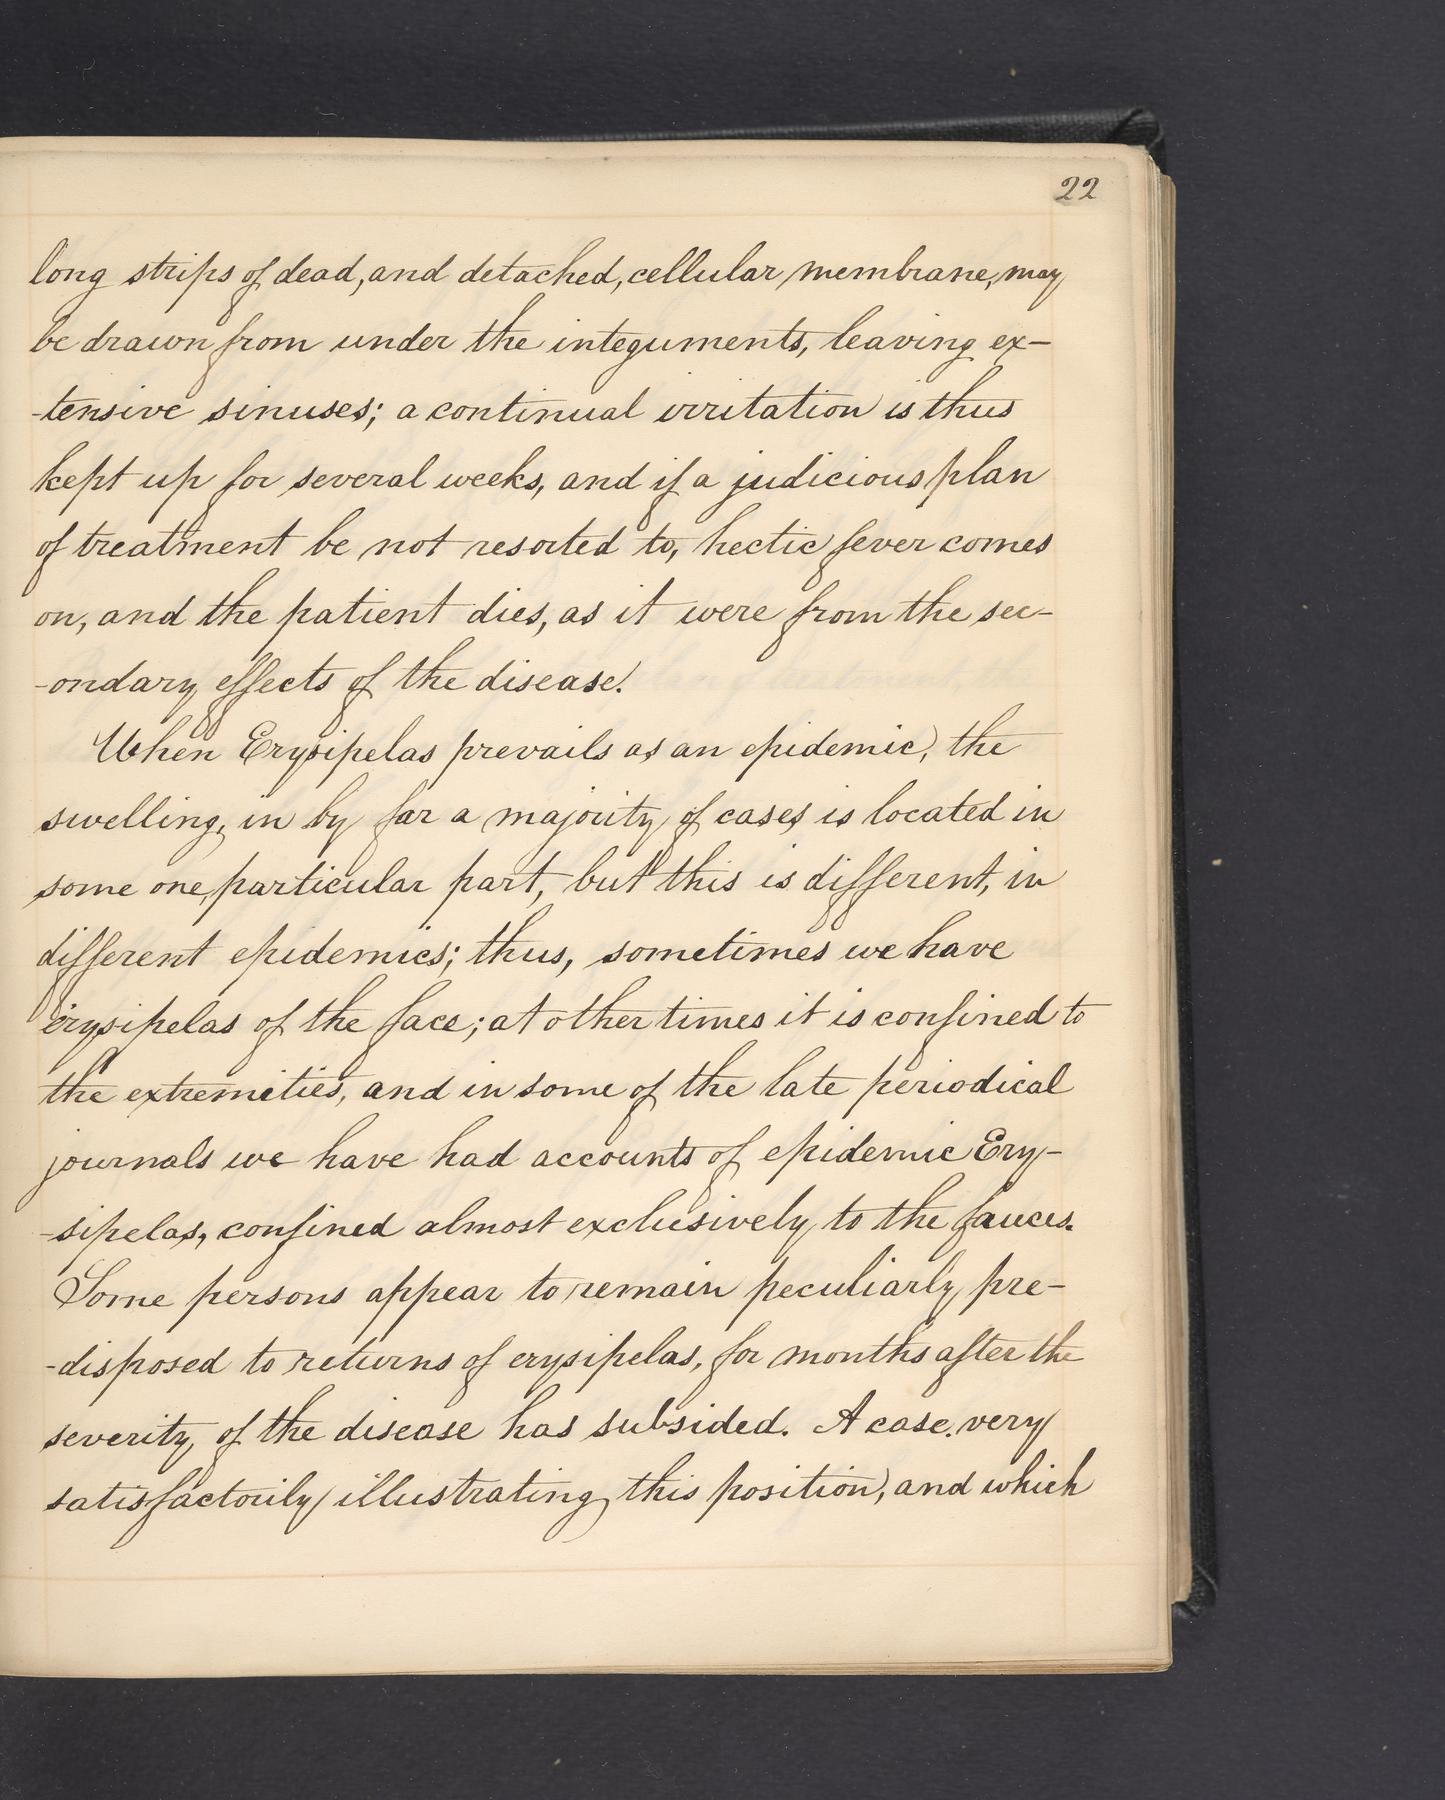 22
long strips of dead, and detached, cellular membrane, may
be drawn from under the integuments, leaving ex-
-tensive sinuses; a continual irritation is thus
kept up for several weeks, and if a judicious plan
of treatment be not resorted to, hectic fever comes
on, and the patient dies, as it were from the sec-
-ondary effects of the disease.
When Erysipelas prevails as an epidemic, the
swelling, in by far a majority of cases is located in
some one, particular part, but this is different, in
different epidemics; thus, sometimes we have
erysipelas of the face; at other times it is confined to
the extremeties, and in some of the late periodical
journals we have had accounts of epidemic Ery-
-sipelas, confined almost exclusively to the fauces.
Some persons appear to remain peculiarly pre-
-disposed to returns of erysipelas, for months after the
severity, of the disease has subsided. A case, very
satisfactorily illustrating this position, and which